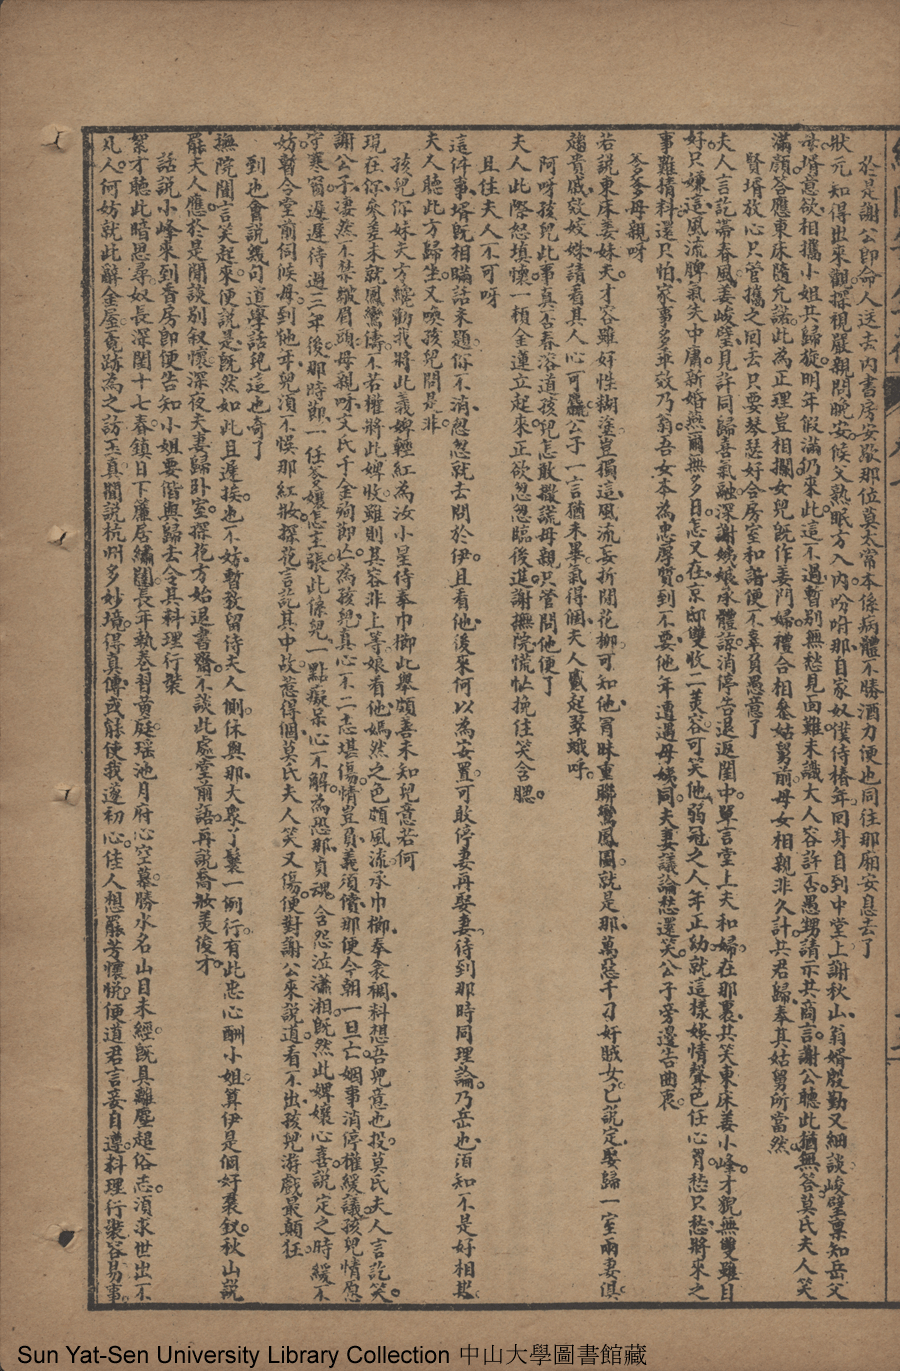 於是謝公即命人送去內書房安歇那位莫太常本係病體不勝酒力便也同往那廂安息去了
狀元知得出來觀探視嚴親問晚安候父熟眠方入內吩咐那自家奴僕侍椿年回身自到中堂上謝秋山翁婿殷勤又細談峻壁稟知岳父
母婿意欲相攜小姐共歸旋明年假滿仍來此這不過暫別無愁見面難未識大人容許否愚甥請示共商言謝公聽此猶無答莫氏夫人笑
滿顏答應東床隨允諾此為正理豈相攔女兒既作姜門婦禮合相叅姑舅前母女相親非久計共君歸奉其姑舅所當然
賢壻放心只管攜之回去只要琴瑟好合房室和諧便不辜負愚意了
夫人言訖帶春風姜峻壁見許同歸喜氣融深謝姨娘承體諒消停告退返閨中單言堂上夫和婦在那裏共笑東床姜小峰才貌無雙雖自
好只嫌這風流脾氣失中庸新婚燕爾無多日怎又在京邸雙收二美容可笑他弱冠之人年正幼就這樣娛情聲色任心胷愁只愁將來之
事難猜料還只怕家事多乖效乃翁吾女本為忠厚質到不要他年遭遇母姨同夫妻議論愁還笑公子旁邊告曲衷
爹爹母親呀
若説東床姜妹夫才容雖好性糊塗豈獨這風流妄折閒花柳可知他冐昧重聯鸞鳳圖就是那萬惡千刁奸賊女已説定娶歸一室兩妻俱
趨貴戚效姣姝請看其人心可
公子一言猶未畢氣得個夫人蹙起翠蛾呼
阿呀孩兒此事真否春溶道孩兒怎敢撒謊母親只管問他便了
夫人此際怒填懷一槓金蓮立起來正欲怱怱臨後進謝撫院慌忙挽住笑含腮
且住夫人不可呀
這件事壻既相瞞話未題俗不消怱怱就去問於伊且看他後來何以為安置可敢停妻再娶妻待到那時同理論乃岳也須知不是好相欺
夫人聽此方歸坐又喚孩兒問是非
孩兒你妹夫方纔勸我將此義婢輕紅為汝小星侍奉巾櫛此舉頗善未知兒意若何
現在你參差未就鳳鸞儔不若權將此婢收雖則其容非上等娘看他嫣然之色頗風流承巾櫛奉衾裯料想吾兒意也投莫氏夫人言訖笑
謝公子淒然不禁縐眉頭母親呀文氏千金殉節亡為孩兒真心不二志堪傷情豈負義須償那便今朝一旦亡姻事消停權緩議孩兒情愿
守寒窗遲遲待過三年後那時節一任爹孃怎主張此係兒一點癡呆心不解為恐那貞魂含怨泣瀟湘既然此婢孃心喜説定之時緩不
妨暫令堂前伺候母到他年兒須不悮那紅妝探花言訖其中故惹得個莫氏夫人笑又傷便對謝公來説道看不出孩兒游戲最顛狂
到也會説幾句道學話兒這也奇了
撫院聞言笑起來便説是既然如此且遲挨也不妨暫教留侍夫人側休與那大衆丫鬟一例行有此忠心酬小姐算伊是個好裙釵秋山説
罷夫人應於是閒談別叙懷深夜夫妻歸卧室探花方始退書齋不談此處堂前語再説喬妝美俊才
話説小峰來到香房即便告知小姐要偕與歸去令其料理行裝
絮才聽此暗思尋奴長深閨十七春鎮日下簾居繡閣長年執卷習黃庭瑶池月府心空慕勝水名山目未經既具離塵超俗志須求世出不
凡人何妨就此辭金屋覓跡為之訪玉真聞説杭州多妙境得真傳或能使我遂初心佳人想罷芳懷悦便道君言妾自遵料理行裝容易事
Sun Yat-Sen University Library Collection 中山大學圖書館藏